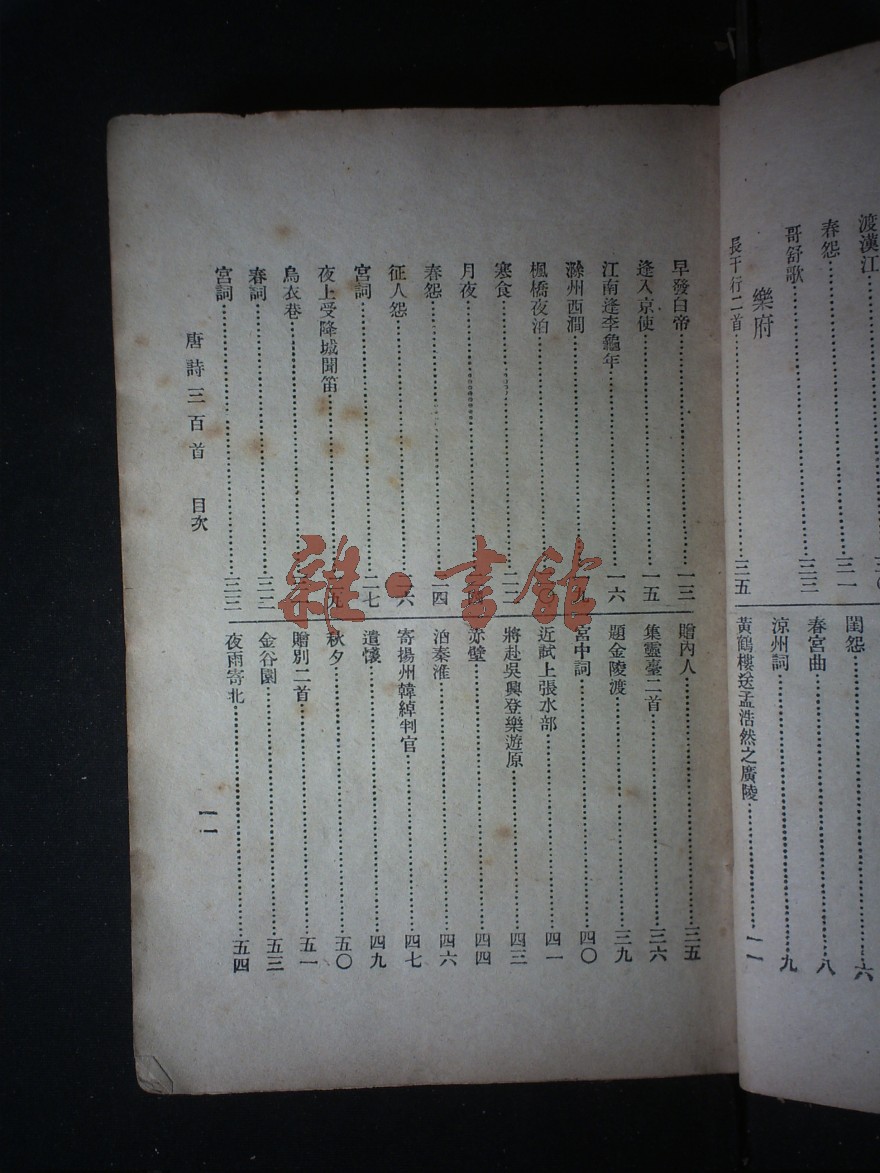 渡漢江……三〇
春怨……三一
哥舒歌……三三
樂府
長干行二首……三五
閨怨……六
春宮曲……八
涼州詞……九
黃鶴樓送孟浩然之廣陵……一一
早發白帝……一三
逢入京使……一五
江南逢李龜年……一六
滁州西澗……九
楓橋夜泊……
寒食……二二
月夜……
春怨……二四
征人怨……六
宮詞……二七
夜上受降城聞笛……九
烏衣巷……
春詞……三二
宮詞……三三
贈內人……三五
集靈臺二首……三六
題金陵渡……三九
宮中詞……四〇
近試上張水部……四一
將赴吳興登樂遊原……四三
赤壁……四四
泊秦淮……四六
寄揚州韓綽判官……四七
遣懷……四九
秋夕……五〇
贈別二首……五一
金谷園……五三
夜雨寄北……五四
唐詩三百首 目次
一一
雜·書館